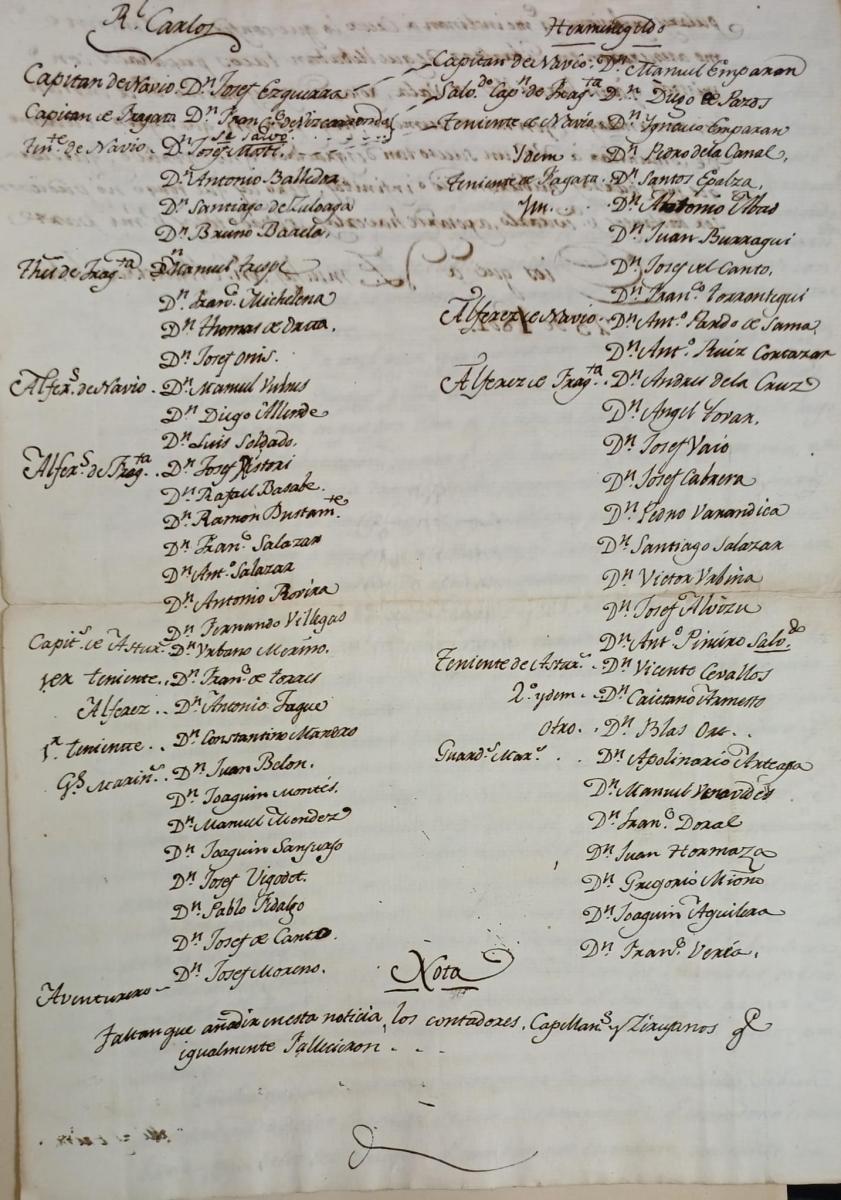 Rl. Carlos
Capitan de Navio. Dn. Josef Ezquerra
Capitan de Fragata Dn. Franco. de Vizcarrondo
se salvó
Tente. de Navio. Dn. Josef Mott.
Dn. Antonio Balledra
Dn. Santiago de Zuloaga
Dn. Bruno Baarela.
Thes. de Fragta. Dn. Manuel Crespi
Dn. Franco. Michelena
Dn. Thomas de Orcca.
Dn. Josef Onis.
Alfers. de Navio. Dn. Manuel Vubus
Dn. Diego Allende
Dn. Luis Soldado.
Alfers. de Fragta. Dn. Josef Pistori
Dn. Rafael Basabe.
Dn. Ramon Bustamte.
Dn. Franco. Salazar
Dn. Anto. Salazar
Dn. Antonio Rovira
Dn. Fernando Villegas
Capits. de Astur. Dn. Urbano Merino.
1er. teniente. Dn. Franco. de torres
Alferez. Dn. Antonio Fague
1r. teniente. Dn. Constantino Marero
Gs. Marins. Dn. Juan Belon.
Dn. Joaquin Montés.
Dn. Manuel Mendez
Dn. Joaquin Sanjurjo
Dn. Josef Vigodet.
Dn. Pablo Fidalgo
Dn. Josef de Canto.
Aventurero - Dn. Josef Moreno.
Hermenegildo
Capitan de Navio. Dn. Manuel Emparan
Salvdo. Capn. de Fragta. Dn. Diego de Pazos
Teniente de Navio. Dn. Ignacio Emparan
Ydem Dn. Pedro de la Canal,
Teniente de Fragata. Dn. Santos Epalza,
Dn. Antonio Abad
Dn. Juan Burragui
Dn. Josef del Canto,
Dn. Franco. Torrontegui
Alferez de Navio. Dn. Anto. Pardo de Sama
Dn. Anto. Ruiz Cortazar
Alferez de Fragta. Dn. Andres de la Cruz
Dn. Angel Toran.
Dn. Josef Vaio
Dn. Josef Cabrera
Dn. Pedro Varandica
Dn. Santiago Salazar
Dn. Victor Urbina
Dn. Josef
Dn. Anto. Piñiro Salvdo.
Teniente de Astur. Dn. Vicente Cevallos
2o. ydem. Dn. Caietano Armesto
Otro. Dn. Blas Ort..
Guards. Mars. Dn. Apolinario Arteaga
Dn. Manuel Venavides
Dn. Franco. Doral
Dn. Juan Hormaza
Dn. Gregorio Miono
Dn. Joaquin Aguilera
Dn. Franco. Veréa.
Nota
Faltan que añadir en esta noticia, los contadores, Capellans. y Zirujanos q.
igualmente Fallecieron. . .